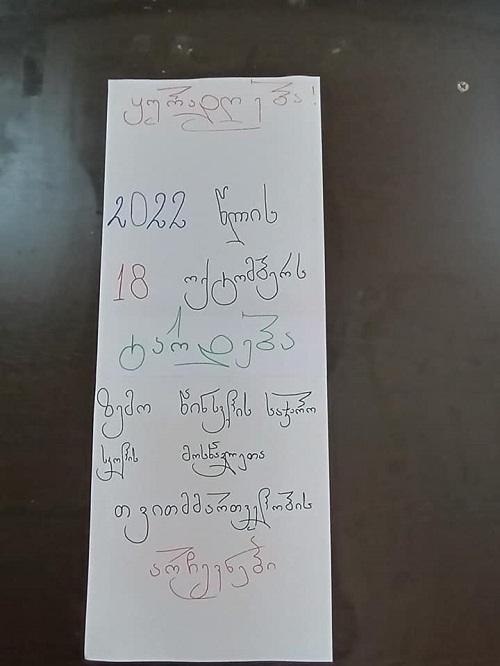 ყურადღება!
2022 წლის
18 ოქტომბერს
ტარდება
ზემო წინსვლის საჯარო
სკოლის მოსწავლეთა
თვითმმართველობის
არჩევნები